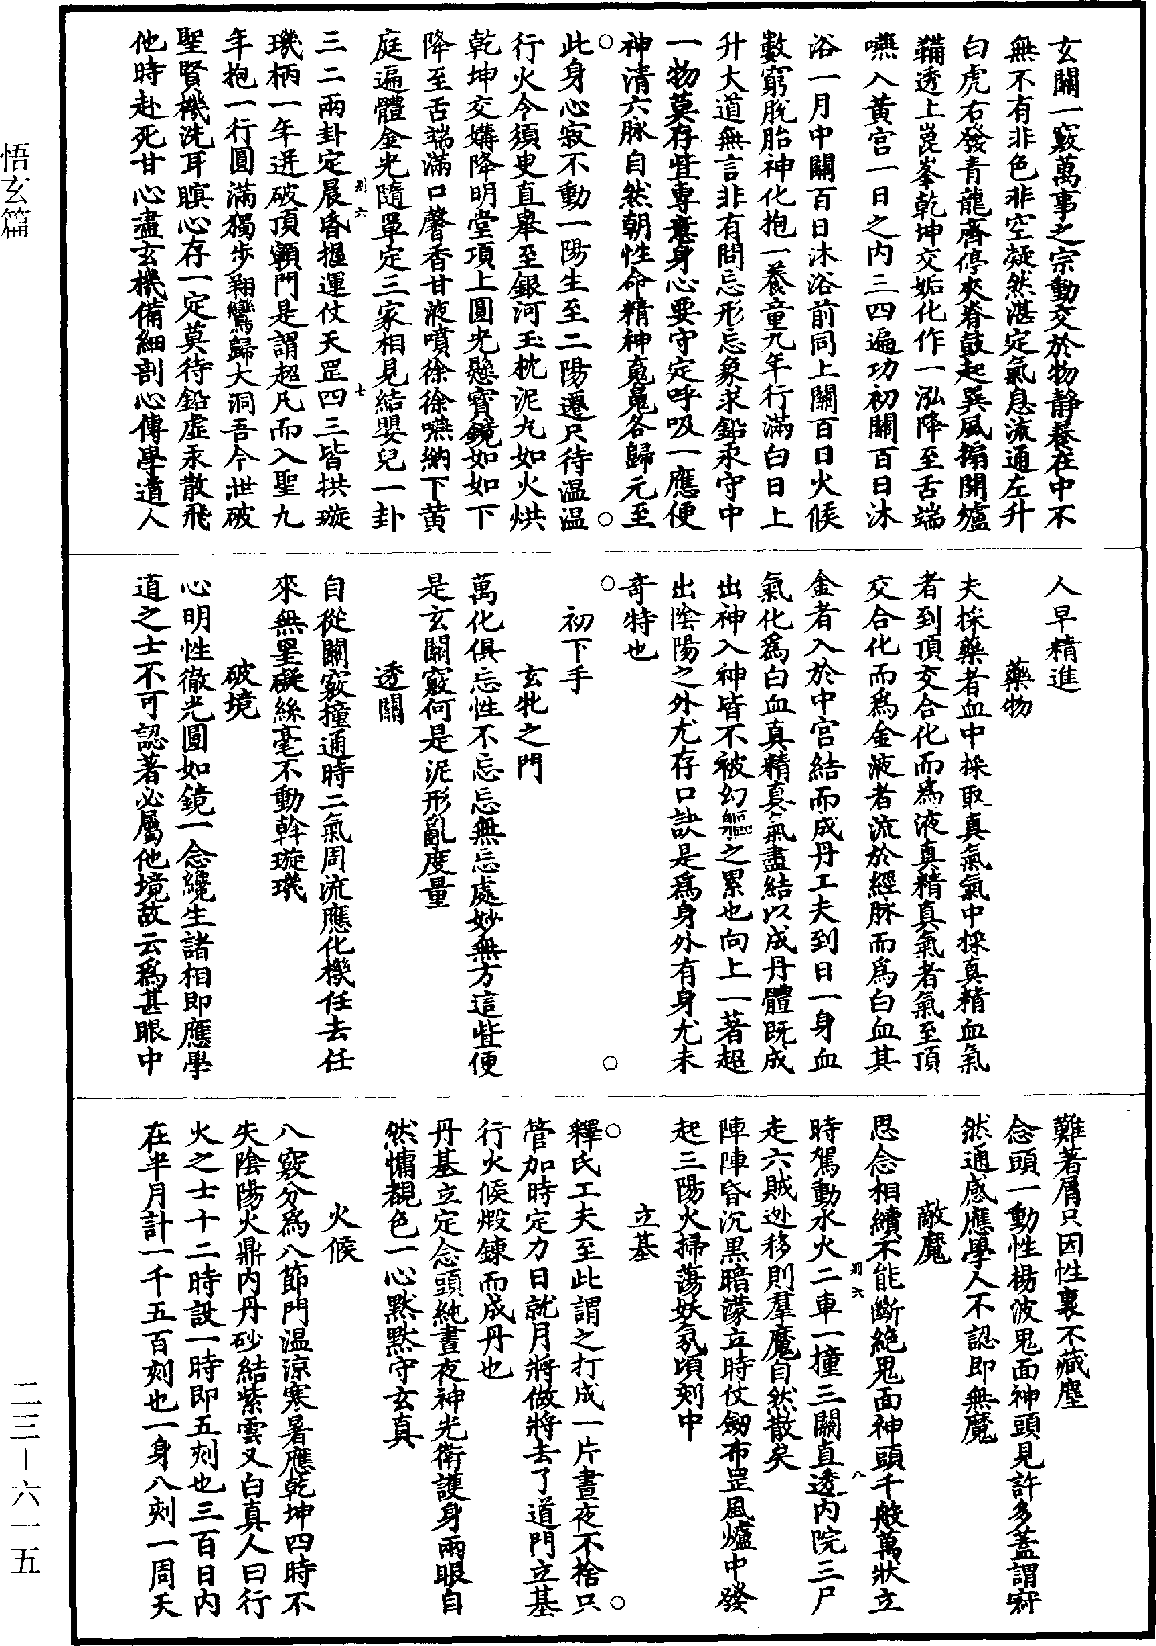 玄關一竅萬事之宗動交於物靜養在中不
無不有非色非空凝然湛定氣息流通左升
白虎右發青龍齊停夾脊鼓起巽風搧開爐
鞴透上崑峯乾坤交姤化作一泓降至舌端
嚥入黃宮一日之內三四遍功初關百日沐
浴一月中關百日沐浴前同上關百日火候
數窮脫胎神化抱一養童九年行滿白日上
升大道無言非有問忘形忘象求鉛汞守中
一物莫存些專意身心要守定呼吸一應便
神清六脉自然朝性命精神魂魄各歸元至
此身心寂不動一陽生至二陽遷只待温温
行火令須臾直舉至銀河玉枕泥丸如火烘
乾坤交媾降明堂項上圓光懸寶鏡如如下
降至舌端滿口馨香甘液噴徐徐嚥納下黃
庭遍體金光隨罩定三家相見結嬰兒一卦
三二兩卦定晨昏握運仗天罡四三皆拱璇
璣柄一年迸破頂顖門是謂超凡而入聖九
年抱一行圓滿獨步翔鸞歸大洞吾今泄破
聖賢機洗耳瞑心存一定莫待鉛虛汞散飛
他時赴死甘心盡玄機備細剖心傳學道人
人早精進
藥物
夫採藥者血中採取真氣氣中採真精血氣
者到頂交合化而為液真精真氣者氣至頂
交合化而為金液者流於經脉而為白血其
金者入於中宮結而成丹工夫到日一身血
氣化為白血真精真氣盡結以成丹體既成
出神入神皆不被幻軀之累也向上一著超
出陰陽之外尤存口訣是為身外有身尤未
奇特也
初下手
玄牝之門
萬化俱忘性不忘忘無忘處妙無方這些便
是玄關竅何是泥形亂度量
透關
自從關竅撞通時二氣周流應化機任去任
來無罣礙絲毫不動斡璇璣
破境
心明性徹光圓如鏡一念纔生諸相即應學
道之士不可認著必屬他境故云為甚眼中
難著屑只因性裏不藏塵
念頭一動性楊波鬼面神頭見許多蓋謂寂
然通感應學人不認即無魔
敵魔
思念相續不能斷絕鬼面神頭千般萬狀立
時駕動水火二車一撞三關直透內院三尸
走六賊迯移則羣魔自然散矣
陣陣昏沉黑暗濛立時仗劒布罡風爐中發
起三陽火掃蕩妖氛頃刻中
立基
釋氏工夫至此謂之打成一片晝夜不捨只
管加時定力日就月將做將去了道門立基
行火候煅鍊而成丹也
丹基立定念頭純晝夜神光衛護身兩眼自
然慵覩色一心默默守玄真
火候
八竅分為八節門温凉寒暑應乾坤四時不
失陰陽火鼎內丹砂結紫雲又白真人曰行
火之士十二時設一時即五刻也三百日內
在半月計一千五百刻也一身八刻一周天
悟玄篇
二三－六一五